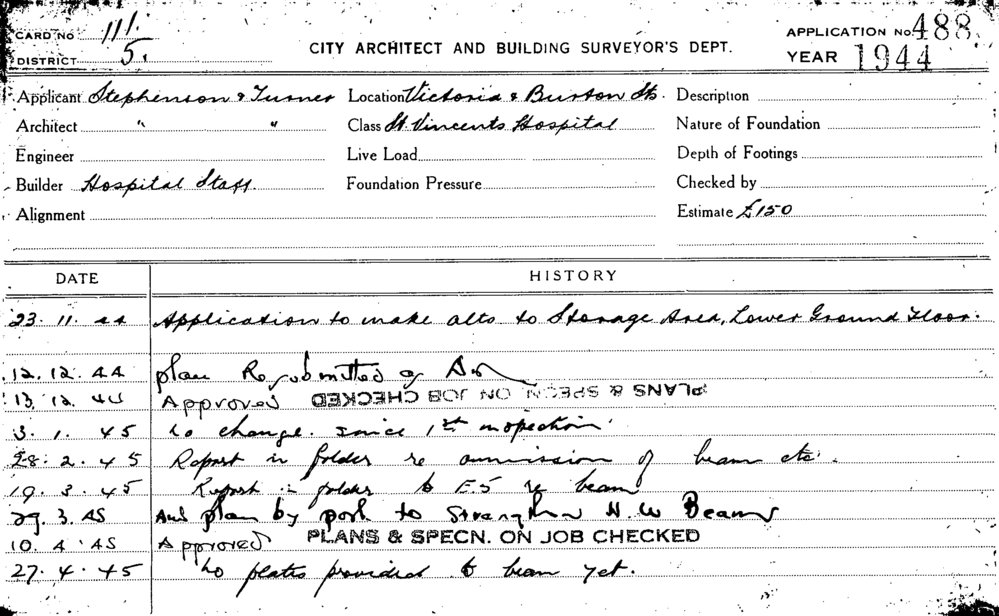 CARD No 111.
DISTRICT 5.
CITY ARCHITECT AND BUILDING SURVEYOR'S DEPT.
APPLICATION No. 488
YEAR 1944
Applicant Stephenson & Turner Location Victoria & Burton Sts. Description
Architect " " Class St. Vincents Hospital Nature of Foundation
Engineer Live Load Depth of Footings
Builder Hospital Staff. Foundation Pressure Checked by
Alignment Estimate £150
DATE HISTORY
23. 11. 44 Application to make alts to Storage Area, Lower Ground Floor.
12. 12. 44 plan Resubmitted
13. 12. 44 Approved PLANS & SPECN. ON JOB CHECKED
3. 1. 45 No change since 1st inspection
28. 2. 45 Report in folder re ommission of beam etc.
19. 3. 45 Report in folder to E.S re beam
29. 3. 45 plan by post to Strengthen H.W Beams
10. 4. 45 Approved PLANS & SPECN. ON JOB CHECKED
27. 4. 45 No plates provided to beam yet.